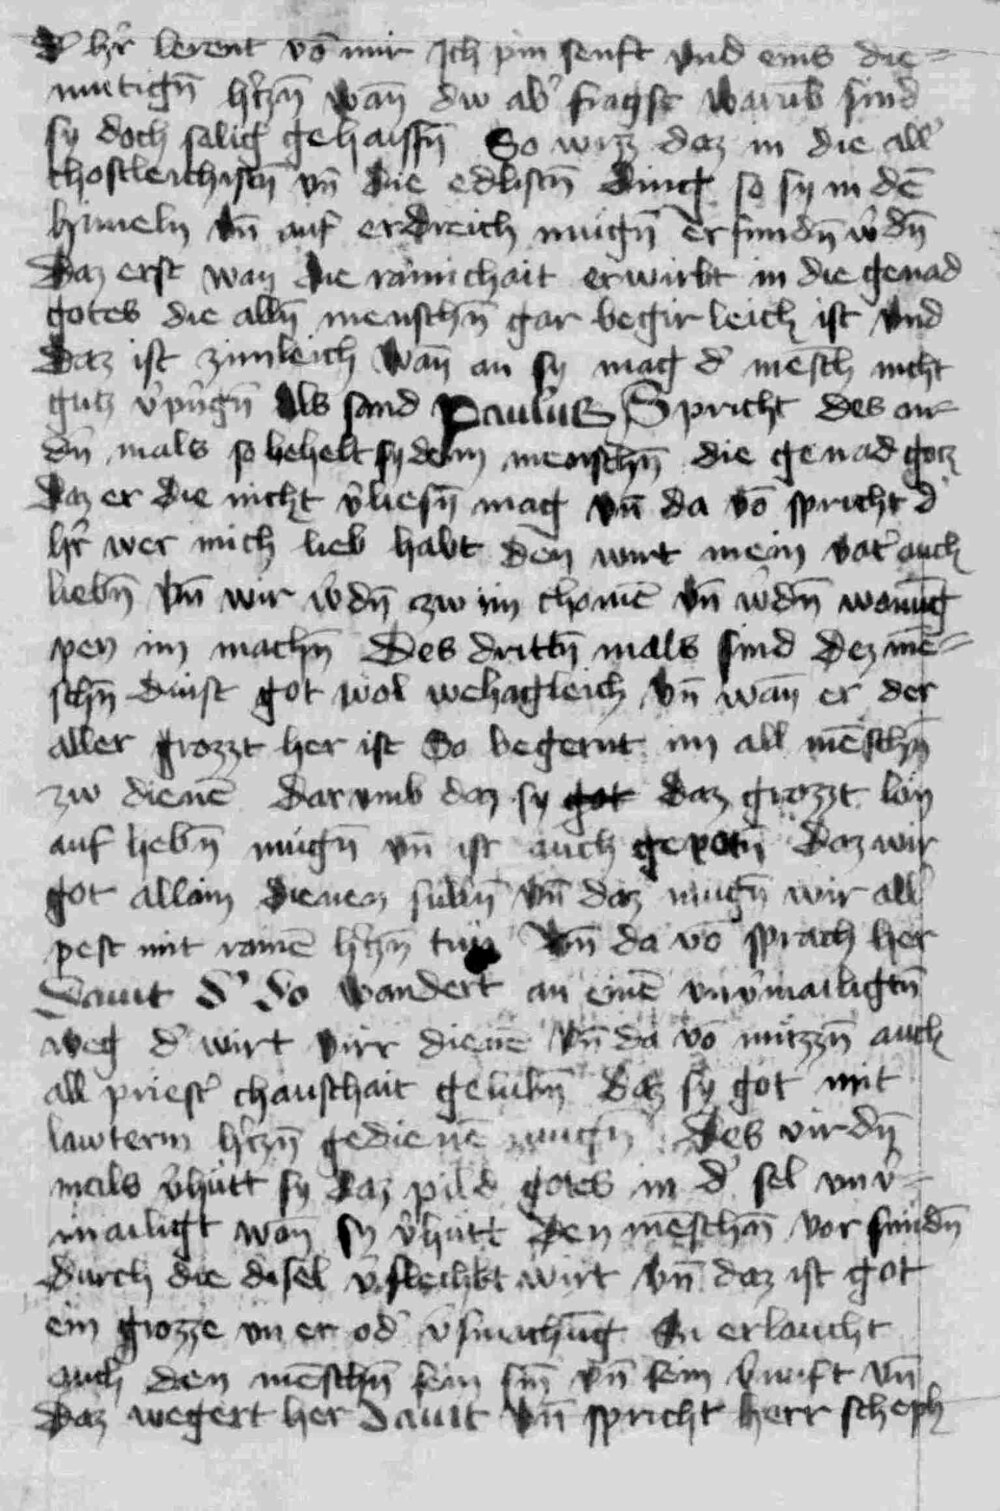 d' h'r lerent vō mir Ich pin senft vnd eins die=
mutign̄ h'czn̄ wan̄ dw ab' fragst warūb sind
sy doch salig gehaissn̄ So wizz daz in die all'
chostleichistn̄ vn̄ die edlistn̄ dingk so sy in dē
himeln vn̄ auf erdreich mugn̄ erfundn̄ w'dn̄
Daz erst wan die rainichait erwirbt in die genad
gotes die alln̄ menschn̄ gar begirleich ist vnd
daz ist zimleich wan̄ an sy mag d' mēsch nicht
gutz v'pringn̄ Als sand Paulus Spricht des an-
dn̄ mals so behelt sy dem menschn̄ die genad gotz
daz er die nicht v'liesn̄ mag vn̄ da vō spricht d'
h'r wer mich lieb habt den wirt mein vat' auch
liebn̄ vn̄ wir w'dn̄ zw im chomē vn̄ w'dn̄ wonūg
pey im machn̄ Des drittn̄ mals sind dez mē=
schn̄ dinst got wol wehagleich vn̄ wan̄ er der
aller grozzt her ist So begernt im all mēschn̄
zw dienē dar vmb daz sy got daz grozzt lon
auf hebn̄ mugn̄ vn̄ ist auch gepotn̄ daz wir
got allain dienen sulln̄ vn̄ daz mugn̄ wir all'
pest mit rainē h'czn̄ tun vn̄ da vō sprach her
Dauit d' do wandert an einē vnv'mailigtn̄
weg d' wirt mir dienē vn̄ da vō muzzn̄ auch
all priest' chauschait gelubn̄ daz sy got mit
lawterm h'czn̄ gedienē mugn̄ Des virdn̄
mals v'hutt sy daz pild gotes in d' sel vnv'=
mailigt wan̄ sy v'hutt den mēschn̄ vor sundn̄
durch die di sel v'fleckht wirt vn̄ daz ist got
ein grozze vn er od' v'smachūg Si erlaucht
auch den mēschn̄ sein sin̄ vn̄ sein v'nuft vn̄
daz wegert her Dauit vn̄ spricht herr scheph